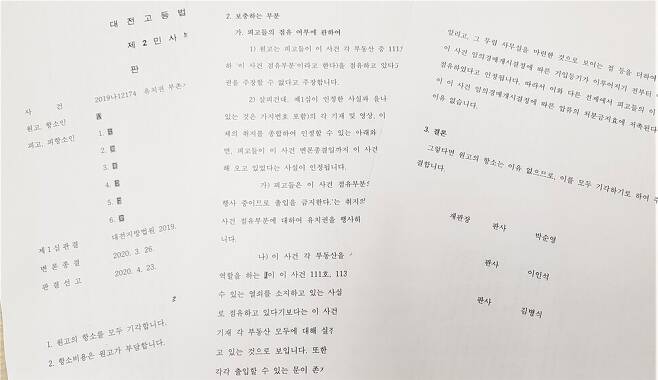 대 전 고 등 법
제 2 민 사
판
사 건 2019나12174 유치권 부존
원고, 항소인
피고, 피항소인 1.
2.
3.
4.
5.
6.
제 1 심 판 결 대전지방법원 2019.
변 론 종 결 2020. 3. 26.
판 결 선 고 2020. 4. 23.
1. 원고의 항소를 모두 기각합니다.
2. 항소비용은 원고가 부담합니다.
2. 보충하는 부분
가. 피고들의 점유 여부에 관하여
1) 원고는 피고들이 이 사건 각 부동산 중 111
하 '이 사건 점유부분'이라고 한다)을 점유하고 있다고
권을 주장할 수 없다고 주장합니다.
2) 살피건대, 제1심이 인정한 사실과 을나
있는 것은 가지번호 포함)의 각 기재 및 영상, 이
체의 취지를 종합하여 인정할 수 있는 아래와
면, 피고들이 이 사건 변론종결일까지 이 사건
해 오고 있었다는 사실이 인정됩니다.
가) 피고들은 이 사건 점유부분
행사 중이므로 출입을 금지한다.'는 취지의
사건 점유부분에 대하여 유치권을 행사하
니다.
나) 이 사건 각 부동산을
역할을 하는 이 사건 111호, 113
수 있는 열쇠를 소지하고 있는 사실
로 점유하고 있다기보다는 이 사건
기재 각 부동산 모두에 대해 실
고 있는 것으로 보입니다. 또한
각각 출입할 수 있는 문이 존
알리고, 그 무렵 사무실을 마련한 것으로 보이는 점 등을 더하여
이 사건 임의경매개시결정에 따른 기입등기가 이루어지기 전부터
점유하였다고 인정됩니다. 따라서 이와 다른 전제에서 피고들의 이
이 이 사건 임의경매개시결정에 따른 압류의 처분금지효에 저촉된다
이유 없습니다.
3. 결론
그렇다면 원고의 항소는 이유 없으므로, 이를 모두 기각하기로 하여 주
결합니다.
재판장 판사 박순영
판사 이인석
판사 김병식